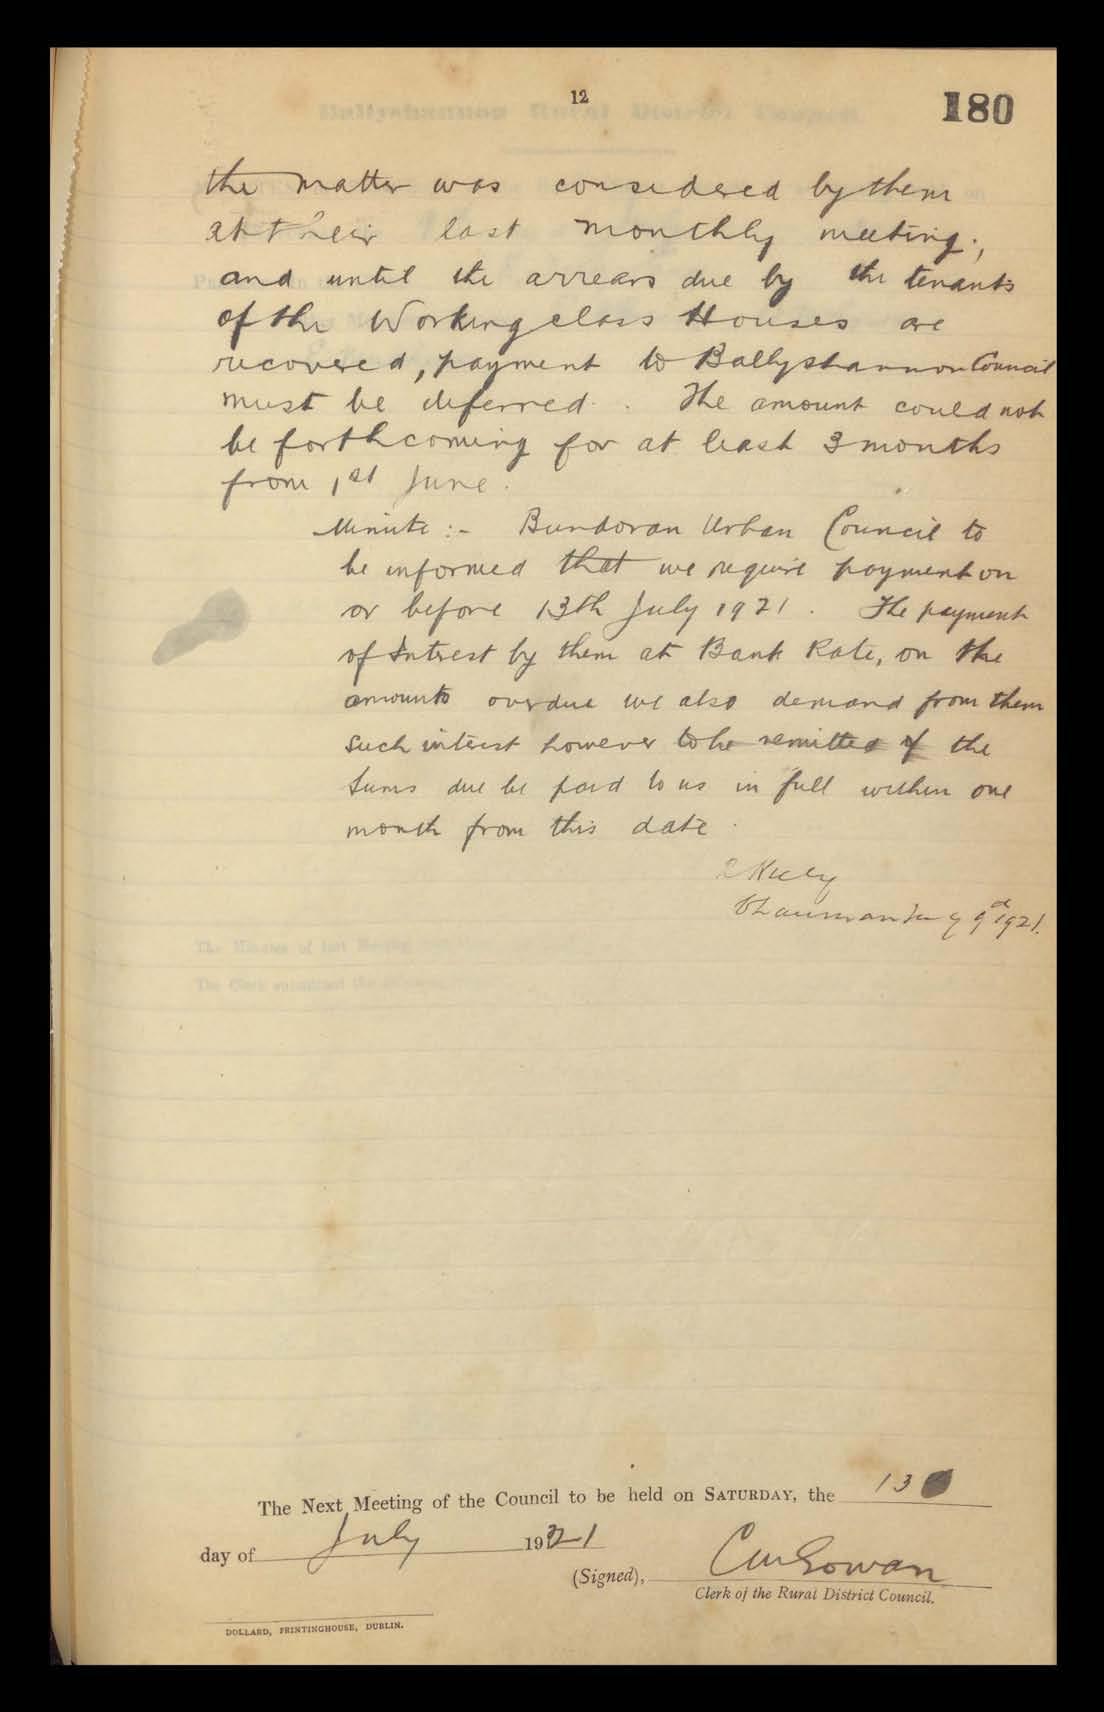 12
180
the matter was considered by them
at their last monthly meeting;
and until the arrears due by the tenants
of the Working class Houses are
recovered, payment to Ballyshannon Council
must be deferred. The amount could not
be forthcoming for at least 3 months
from 1st June.
Minute :- Bundoran Urban Council to
be informed that we require payment on
or before 13th July 1921. The payment
of Interest by them at Bank Rate, on the
amounts overdue we also demand from them
such interest however to be remitted if the
sums due be paid to us in full within one
month from this date.
Chairman 1921.
The Next Meeting of the Council to be held on SATURDAY, the 13
day of July 1921
(Signed),
Clerk of the Rural District Council.
DOLLARD, PRINTINGHOUSE, DUBLIN.